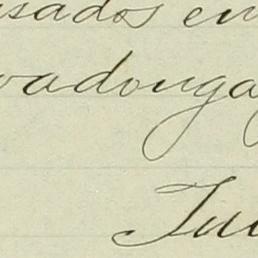 sados en
vadonga
Ju